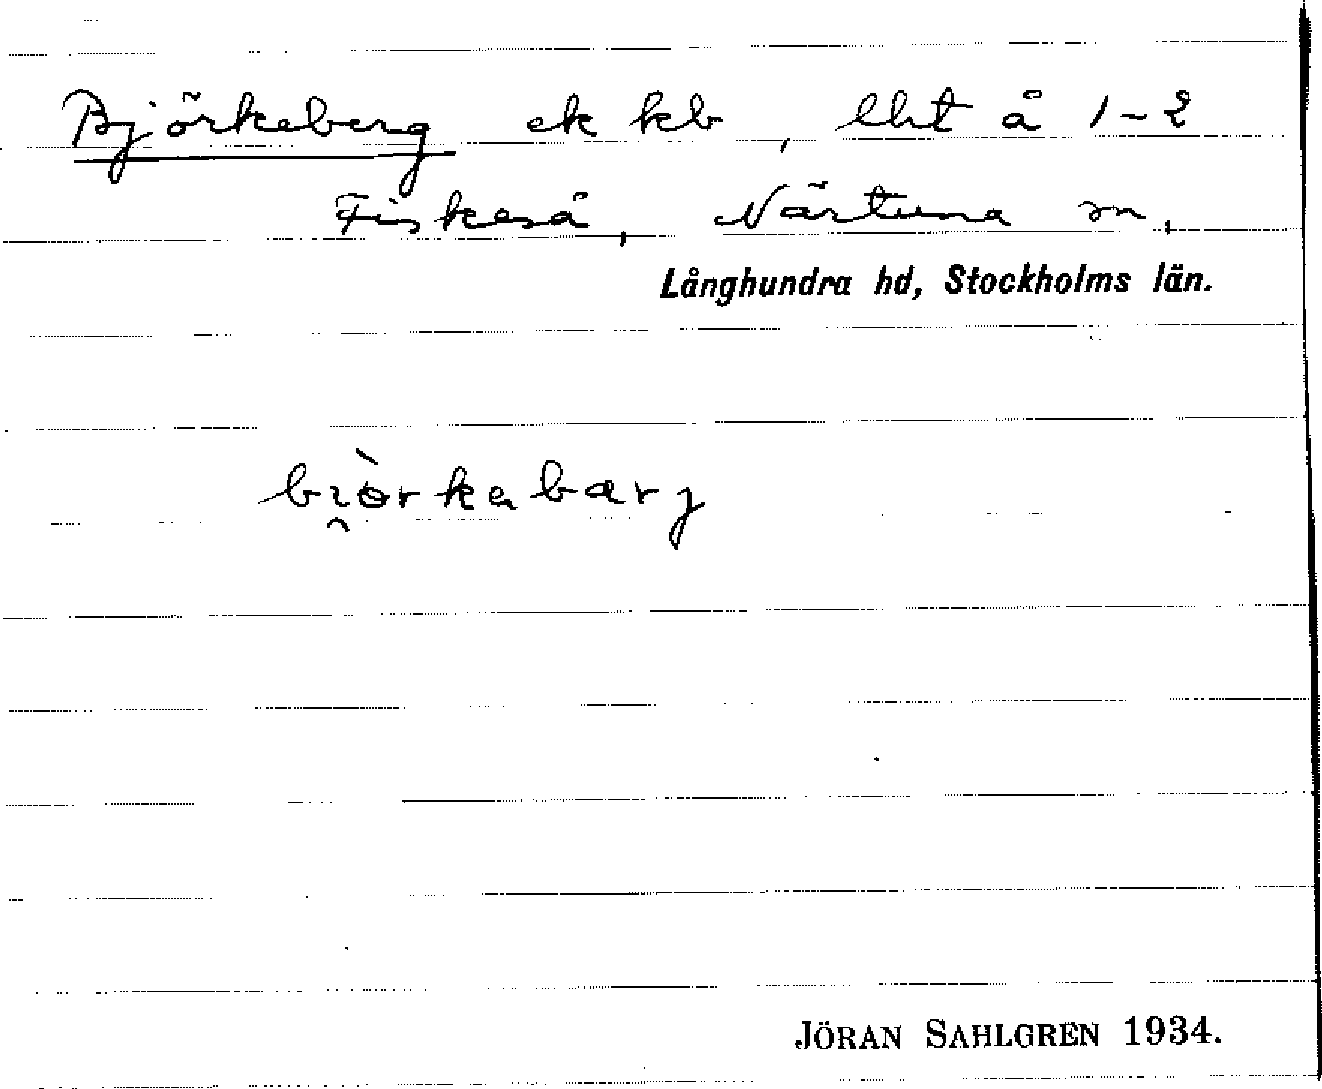 Björkeberg ek kb, lht å 1-2
Fiskeså, Närtuna sn,
Långhundra hd, Stockholms län.
bi̯òrkabarj
JÖRAN SAHLGREN 1934.